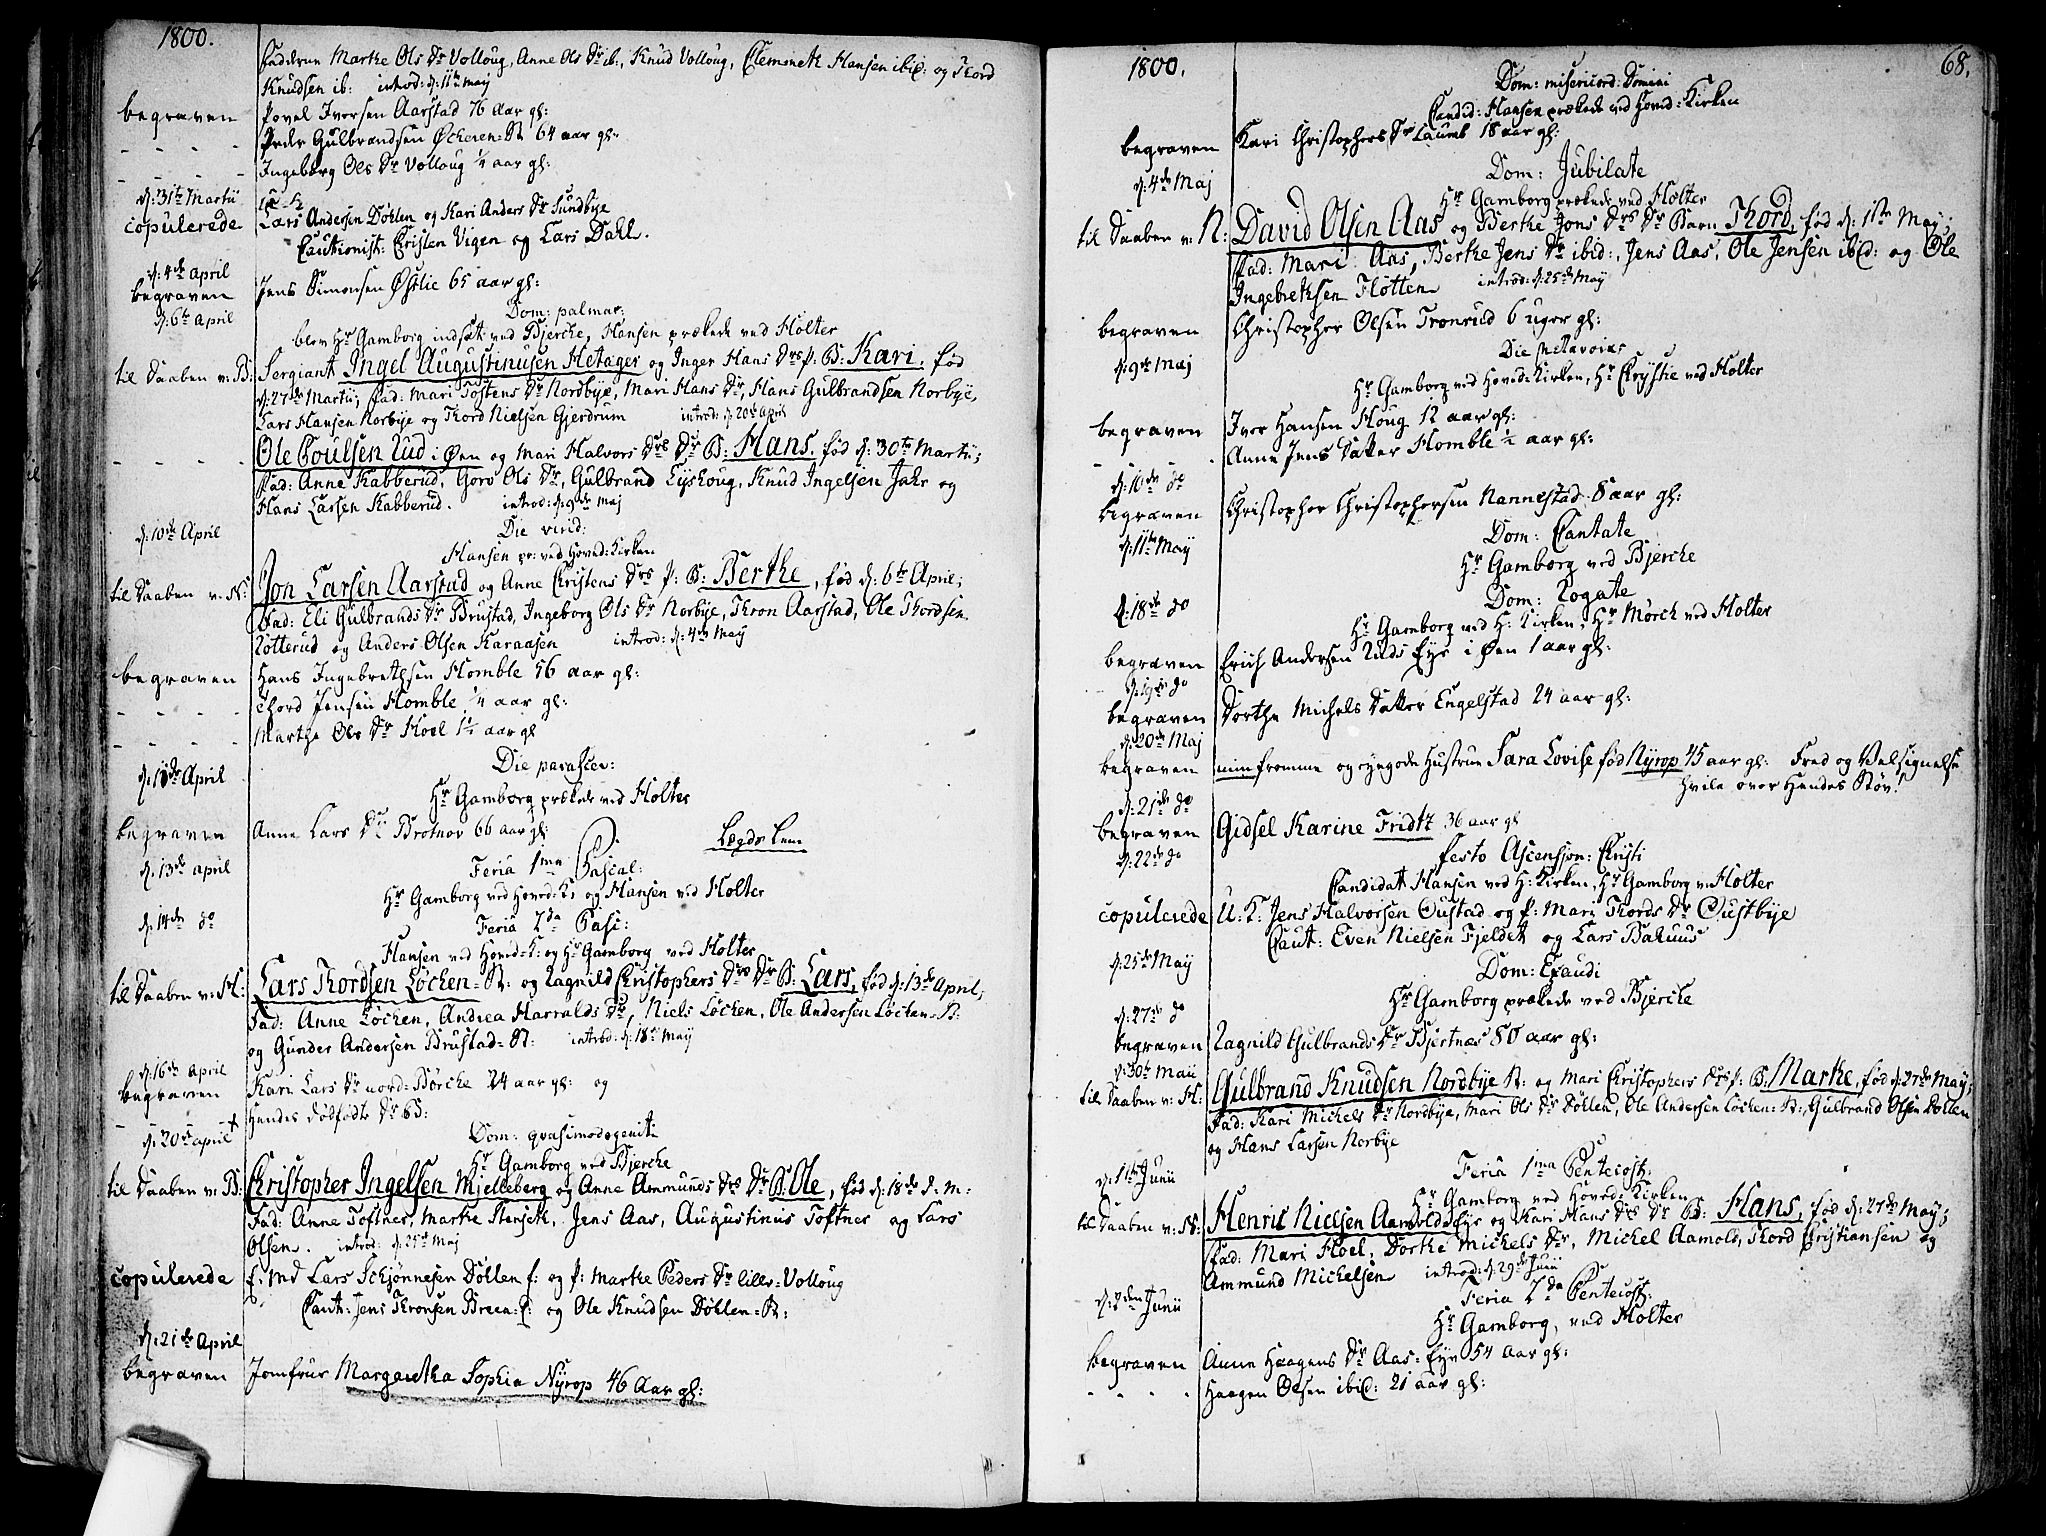 1800.
Marthe Ols Dr Volloug, Anne Ols Dr ib:, Knud Volloug, Hansen ibid: og Thord
Knudsen ib: introd: d: 11te May
begraven Povel Iversen Aarstad 76 Aar gl:
- - - - Peder Gulbrandsen 64 aar gl:
- - - - Ingeborg Ols Dr Volloug ¼ aar gl:
d: 31te Martii
copulerede Lars Andersen Døhlen og Kari Anders Dr Sundbye
Cautionist: Christen Vigen og Lars Dahl.
d: 4de April
begraven Jens Simonsen Østlie 65 aar gl:
d: 6te April Dom: palmar:
blev Hr Gamborg indsat ved Bjercke, Hansen prækede ved Holter
til Daaben v: B: Sergiant Ingel Augustinusen Hetager og Inger Hans Drs p: B: Kari, fød
d: 27de Martii; fad: Mari Tostens Dr Nordbye, Mari Hans Dr, Hans Gulbrandsen Norbye,
Lars Hansen Norbye og Thord Nielsen Gjerdrum introd: d: 20de April
- - - - Ole Poulsen Rud i Øen og Mari Halvors Drs Dr B: Hans, fød d: 30te Martii;
fad: Anne Kabberud, Goro Ols Dr, Gulbrand Lyshoug, Knud Ingelsen Jahr og
Hans Larsen Kabberud. introd: d: 9de Maj
d: 10de April Die virid:
Hansen pr: ved Hoved-Kirken
til Daaben v: H: Jon Larsen Aarstad og Anne Christens Drs p: B: Berthe, fød d: 6te April;
Fad: Eli Gulbrands Dr Brustad, Ingeborg Ols Dr Norbye, Thron Aarstad, Ole Thordsen
Rotterud og Anders Olsen Karaasen introd: d: 4de May
begraven Hans Ingebrethsen Homble 56 aar gl:
- - - - Thord Jensen Homble ¼ aar gl:
- - - - Marthe Ols Dr Hoel 1½ aar gl
d: 11te April Die parascev:
Hr Gamborg prækede ved Holter
begraven Anne Lars Dr Brotnov 66 aar gl: Lægds Lem
d: 13de april Feria 1ma Pascal:
Hr Gamborg ved Hoved-K: og Hansen ved Holter
d: 14de do Feria 2da Pasc:
Hansen ved Hoved-K: og Hr Gamborg ved Holter
til Daaben v: H: Lars Thordsen Løcken-St: og Ragnild Christophers Drs Dr B: Lars, fød d: 13de April;
Fad: Anne Løcken, Andrea Harralds Dr, Niels Løcken, Ole Andersen Løcken-St:
og Gunder Andersen Brustad-St: introd: d: 18de May
d: 16de April
begraven Kari Lars Dr nord-Børcke 24 aar gl: og
- - Hendes dødfødte Dr B:
d: 20de april Dom: qvasimodogeniti
Hr Gamborg ved Bjercke
til Daaben v: B: Christopher Ingelsen Mjelleberg og Anne Ammunds Drs Dr B: Ole, fød d: 18de d: M:
Fad: Anne Toftner, Marthe Stenseth, Jens Aas, Augustinus Toftner og Lars
Olsen. introd: d: 25de Maj
copulerede E: Md Lars Schjønnesen Døhlen E: og P: Marthe Peders Dr lille-Volloug
Caut: Jens Thronsen og Ole Knudsen Døhlen-St:
d: 21de April
begraven Jomfrue Margaretha Sophia Nyrop 46 Aar gl:

1800. 68.
Dom: misericord: Domini
Candid: Hansen prækede ved Hoved-Kirken
begraven Kari Christophers Dr Laumb 18 aar gl:
d: 4de Maj Dom: Jubilate
Hr Gamborg prækede ved Holter
til Daaben v: N: David Olsen Aas og Berthe Jons Drs Dr Barn Thord, fød d: 1ste May;
Fad: Mari Aas, Berthe Jens Dr ibid:, Jens Aas, Ole Jensen ibid: og Ole
Ingebrethsen Flotten introd: d: 25de May
begraven Christopher Olsen Tronrud 6 uger gl:
d: 9de Maj Die Metavoias
Hr Gamborg ved Hoved-Kirken, Hr Chrystie ved Holter
begraven Iver Hansen Houg 12 aar gl:
- - Anne Jens Datter Homble ½ aar gl:
d: 10de do
begraven Christopher Christophersen Nannestad 8 aar gl:
d: 11te May Dom: Cantate
Hr Gamborg ved Bjercke
d: 18de do Dom: Rogate
Hr Gamborg ved H: Kirken, Hr Mørch ved Holter
begraven Erich Andersen Ruds Eye i Øen 1 aar gl:
d: 19de do
begraven Dorthe Michels Datter Engelstad 24 aar gl:
d: 20de Maj
begraven min fromme og eyegode Hustrue Sara Lovise fød Nyrop 45 aar gl: Fred og Velsignelse
hvile over Hendes Støv!
d: 21de do
begraven Gidsel Karine Fridtz 36 aar gl
d: 22de do Festo Ascension: Christi
Candidat Hansen ved H: Kirken, Hr Gamborg v: Holter
copulerede U: K: Jens Halvorsen Oustad og P: Mari Thords Dr Oustbye
Caut: Even Nielsen Fjeldet og Lars Bakuus
d: 25de May Dom: Exaudi
Hr Gamborg prækede ved Bjercke
d: 27de do
begraven Ragnild Gulbrands Dr Bjertnæs 80 aar gl:
d: 30te Maii
til Daaben v: H: Gulbrand Knudsen Nordbye St: og Mari Christophers Drs p: B: Marthe, fød d: 27de May;
Fad: Kari Michels Dr Nordbye, Mari Ols Dr Døhlen, Ole Andersen Løcken-St:, Gulbrand Olsen Døhlen
og Hans Larsen Norbye
d: 1te Junii Feria 1ma Pentecost:
Hr Gamborg ved Hoved-Kirken
til Daaben v: H: Henric Nielsen Aamolds Eye og Kari Hans Drs Dr B: Hans, fød d: 27de May;
Fad: Mari Hoel, Dorthe Michels Dr, Michel Aamold, Thord Christiansen og
Ammund Michelsen introd: d: 29de Junii
d: 2den Junii Feria 2da Pentecost:
Hr Gamborg, ved Holter
begraven Anne Haagens Dr Aas-Eye 54 Aar gl:
- - - - Haagen Olsen ibid: 21 aar gl: